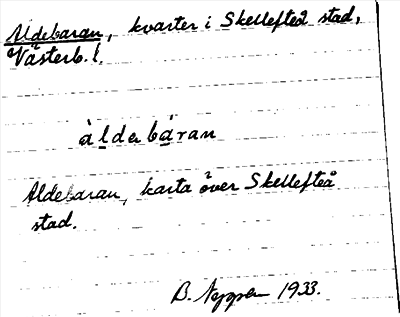 Aldebaran, kvarter i Skellefteå stad,
Västerb. l.
àldebáran
Aldebaran, karta över Skellefteå
stad.
B. 1933.